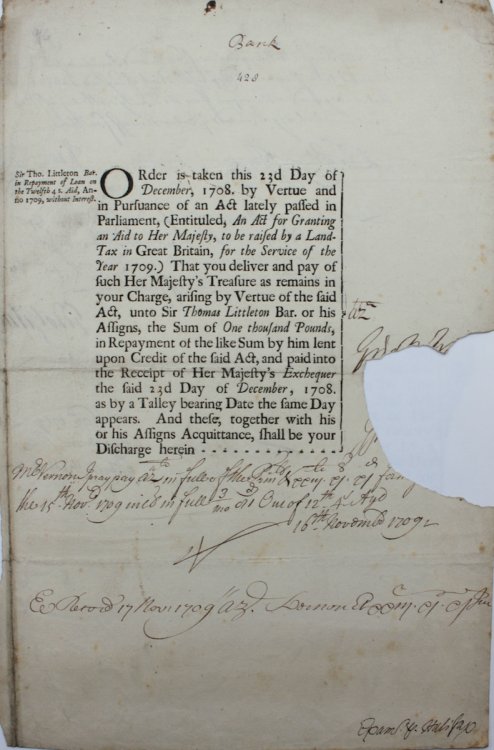 Bank
428
Sir Tho. Littleton Bar.
in Repayment of Loan on
the Twelfth 4 s. Aid, An-
no 1709, without Interest.
ORder is taken this 23d Day of
December, 1708. by Vertue and
in Pursuance of an Act lately passed in
Parliament, (Entituled, An Act for Granting
an Aid to Her Majesty, to be raised by a Land-
Tax in Great Britain, for the Service of the
Year 1709.) That you deliver and pay of
such Her Majesty's Treasure as remains in
your Charge, arising by Vertue of the said
Act, unto Sir Thomas Littleton Bar. or his
Assigns, the Sum of One thousand Pounds,
in Repayment of the like Sum by him lent
upon Credit of the said Act, and paid into
the Receipt of Her Majesty's Exchequer
the said 23d Day of December, 1708.
as by a Talley bearing Date the same Day
appears. And these, together with his
or his Assigns Acquittance, shall be your
Discharge herein
Mr Vernon I pray pay in full of
the 15th Novr 1709 in full Out of 12th 4s Ayd
16th Novembr 1709
Record 17 Nov. 1709
Exam p Halifax